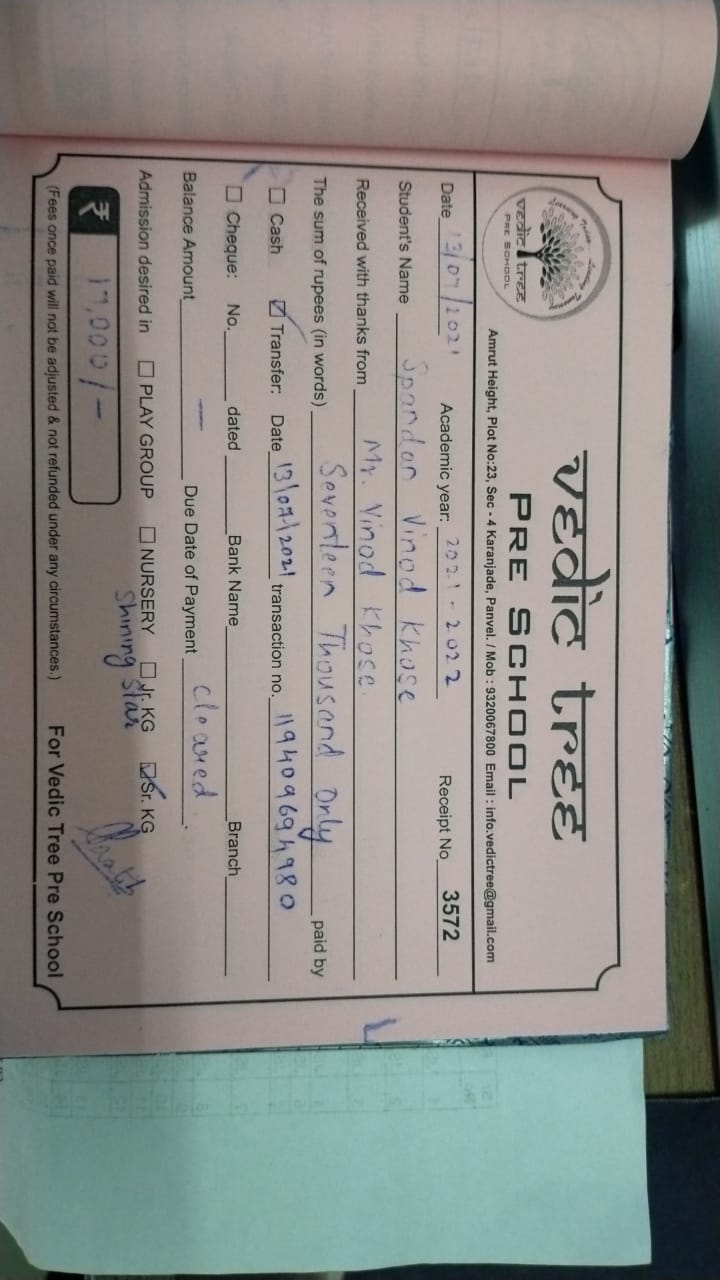 vedic tree
PRE SCHOOL
vedic tree
PRE SCHOOL
Amrut Height, Plot No:23, Sec - 4 Karanjade, Panvel. / Mob : 9320067800 Email : info.vedictree@gmail.com
Date 13/07/2021 Academic year: 2021-2022 Receipt No 3572
Student's Name Spandan Vinod Khose
Received with thanks from Mr. Vinod Khose.
The sum of rupees (in words) Seventeen Thousand Only paid by
☐ Cash ☑ Transfer: Date 13/07/2021 transaction no. 119409694980
☐ Cheque: No. dated Bank Name Branch
Balance Amount — Due Date of Payment Cleared.
Admission desired in ☐ PLAY GROUP ☐ NURSERY ☐ Jr. KG ☑ Sr. KG
Shining Star
₹ 17,000/-
(Fees once paid will not be adjusted & not refunded under any circumstances.) For Vedic Tree Pre School